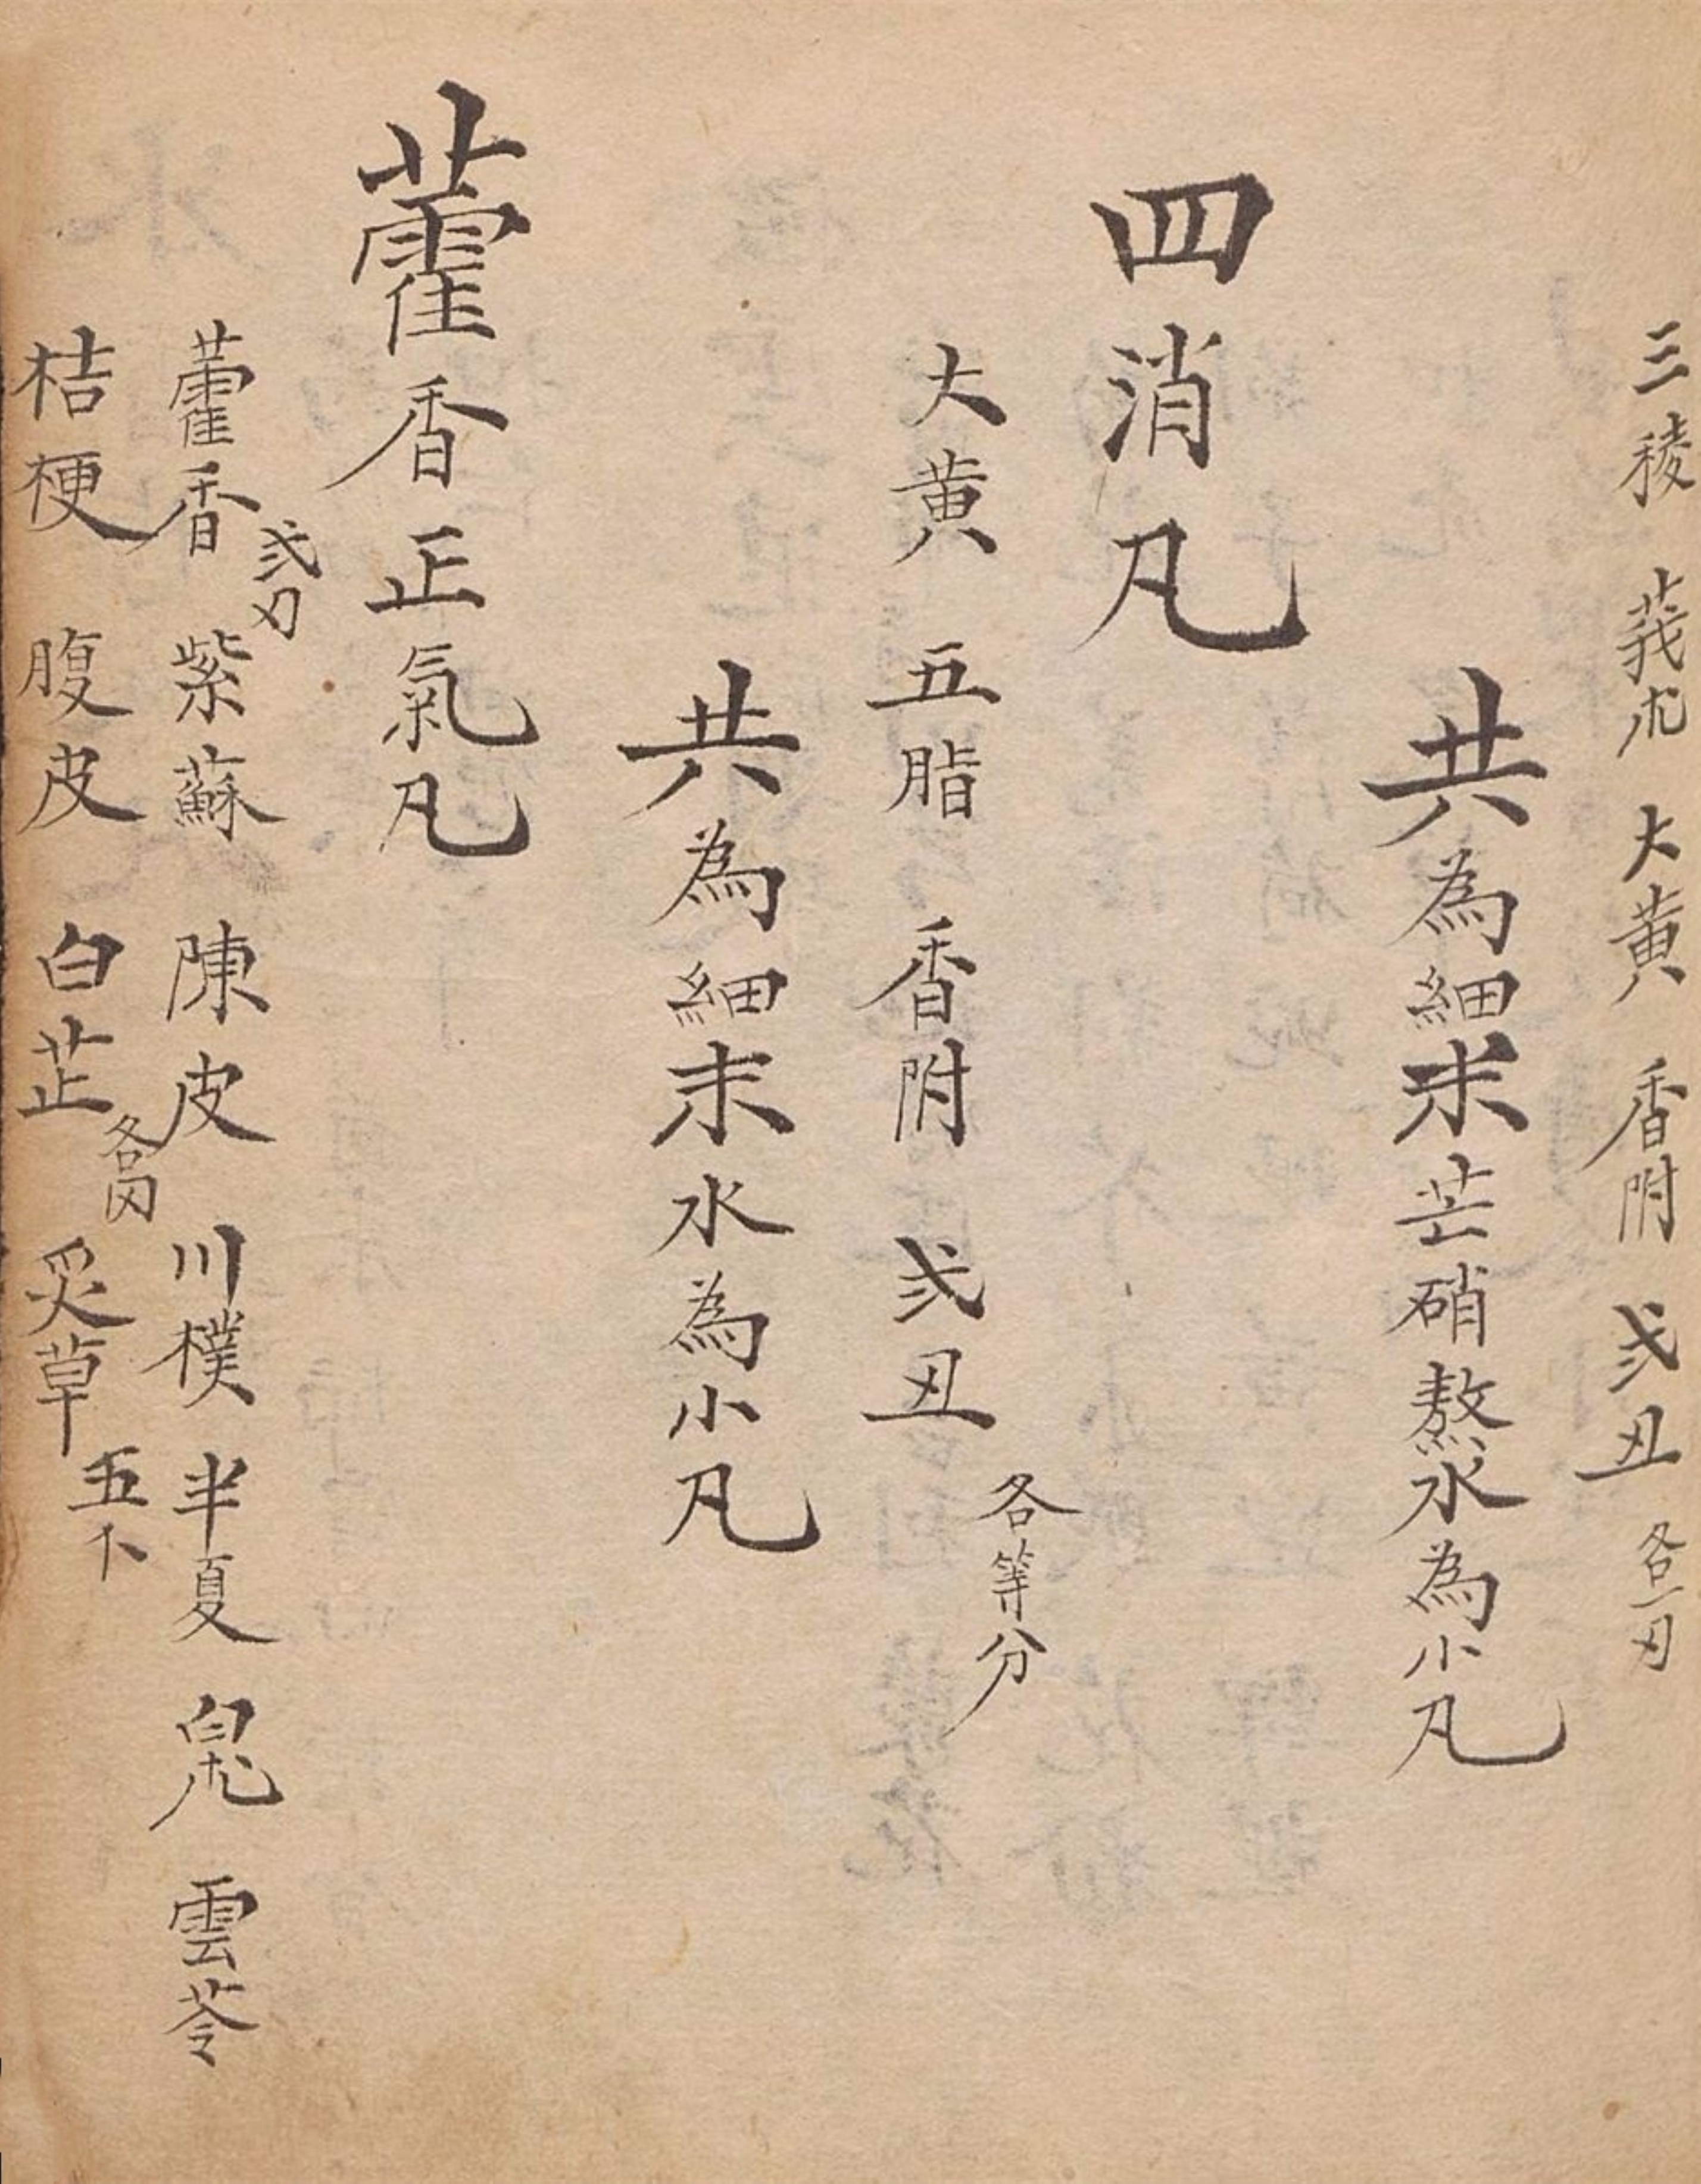 三稜 莪朮 大黄 香附 弍丑 各一刃
共為細末芒硝熬水為小凡
四消凡
大黄 五脂 香附 弍丑 各等分
共為細末水為小凡
藿香正氣凡
藿香 弍刃 紫蘇 陳皮 川樸 半夏 皃 雲苓
桔梗 腹皮 白芷 各 炙草 五卜